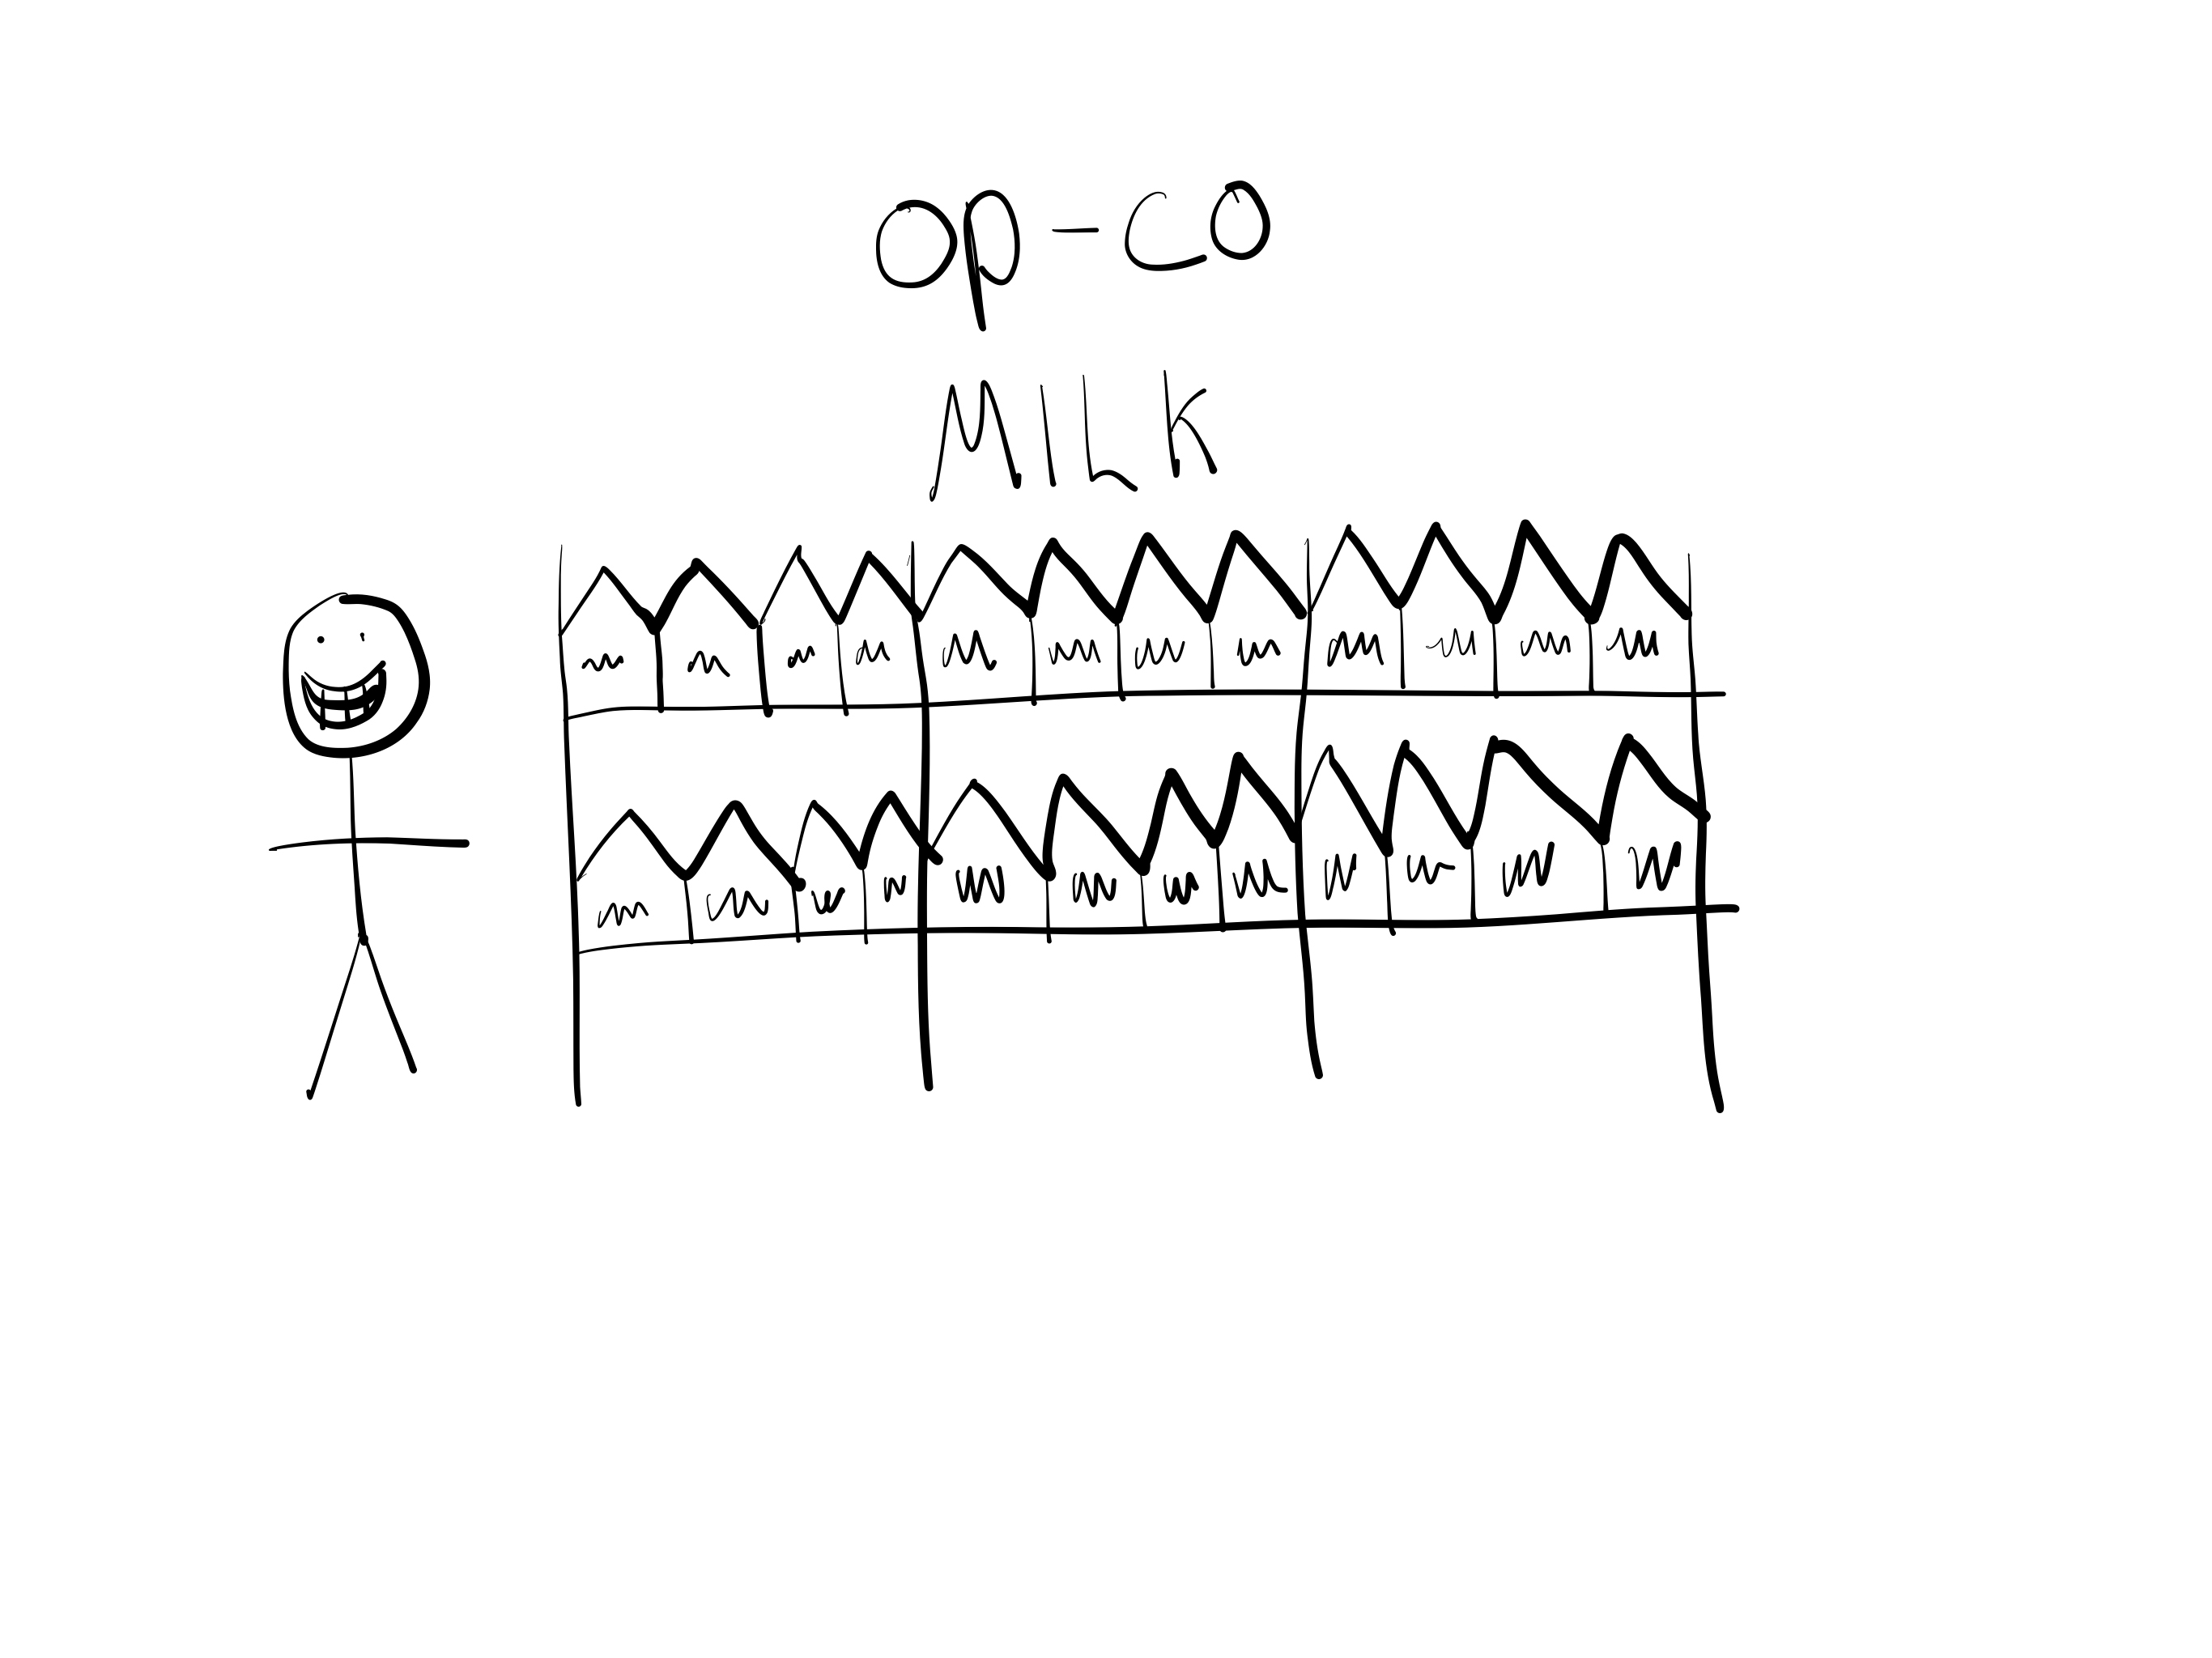 op-co
MILK